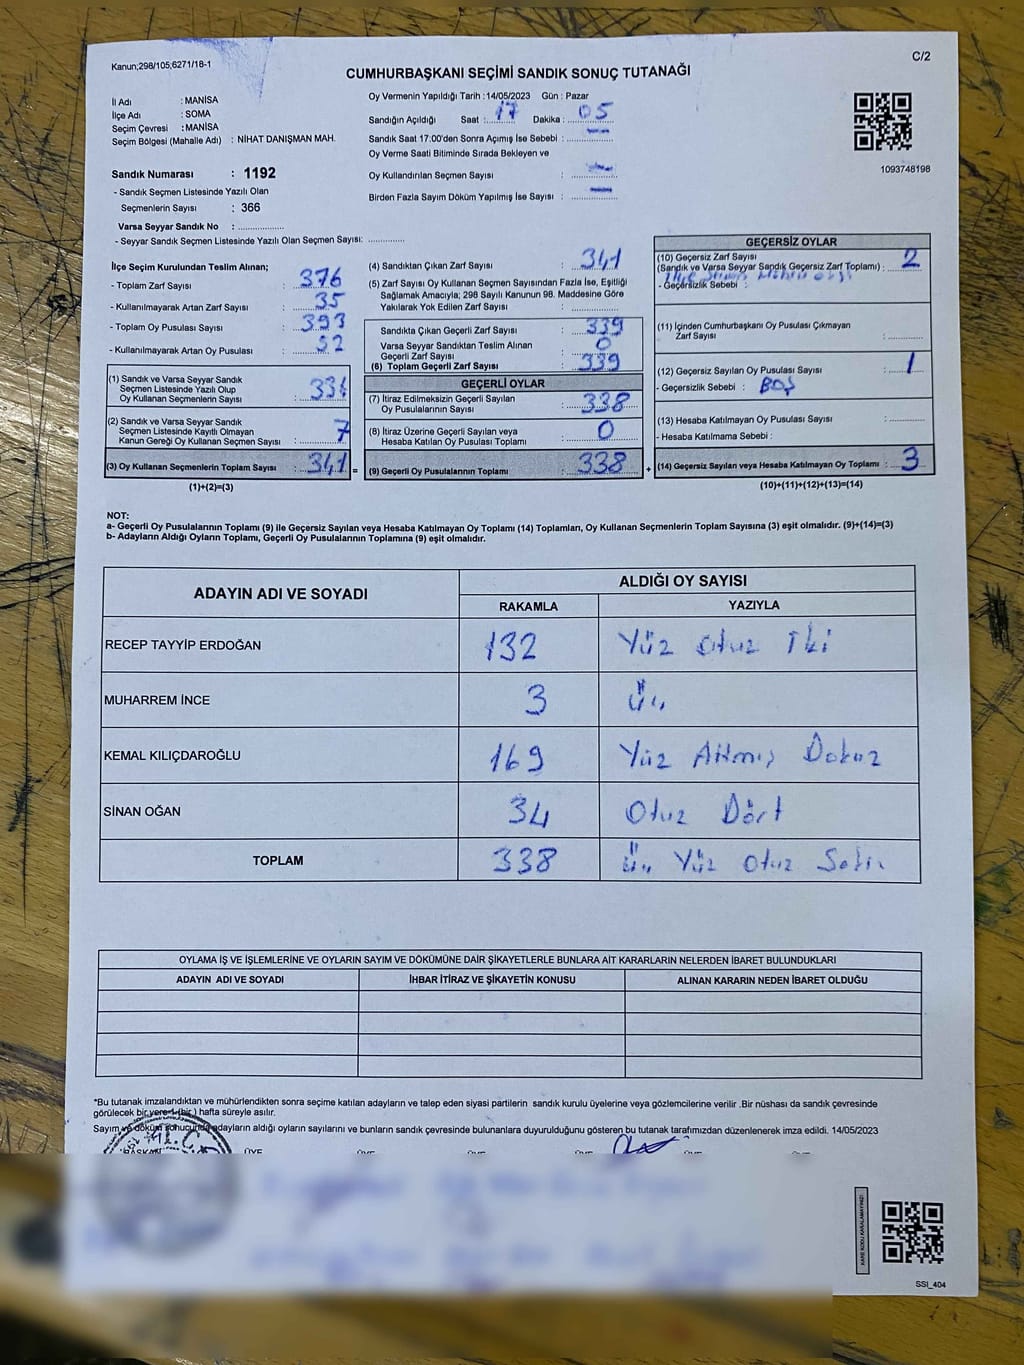 Kanun;298/105,6271/18-1
C/2
CUMHURBAŞKANI SEÇİMİ SANDIK SONUÇ TUTANAĞI
İl Adı : MANİSA
İlçe Adı : SOMA
Seçim Çevresi : MANİSA
Seçim Bölgesi (Mahalle Adı) : NİHAT DANIŞMAN MAH.
Sandık Numarası : 1192
- Sandık Seçmen Listesinde Yazılı Olan
Seçmenlerin Sayısı : 366
Varsa Seyyar Sandık No : ................
- Seyyar Sandık Seçmen Listesinde Yazılı Olan Seçmen Sayısı: .............
Oy Vermenin Yapıldığı Tarih :14/05/2023 Gün : Pazar
Sandığın Açıldığı Saat : 17 Dakika : 05
Sandık Saat 17:00'den Sonra Açımış İse Sebebi : —
Oy Verme Saati Bitiminde Sırada Bekleyen ve
Oy Kullandırılan Seçmen Sayısı : —
Birden Fazla Sayım Döküm Yapılmış İse Sayısı : —
1093748198
İlçe Seçim Kurulundan Teslim Alınan;
- Toplam Zarf Sayısı : 376
- Kullanılmayarak Artan Zarf Sayısı : 35
- Toplam Oy Pusulası Sayısı : 393
- Kullanılmayarak Artan Oy Pusulası : 52
(1) Sandık ve Varsa Seyyar Sandık
Seçmen Listesinde Yazılı Olup
Oy Kullanan Seçmenlerin Sayısı : 334
(2) Sandık ve Varsa Seyyar Sandık
Seçmen Listesinde Kayıtlı Olmayan
Kanun Gereği Oy Kullanan Seçmen Sayısı : 7
(3) Oy Kullanan Seçmenlerin Toplam Sayısı : 341 =
(1)+(2)=(3)
(4) Sandıktan Çıkan Zarf Sayısı : 341
(5) Zarf Sayısı Oy Kullanan Seçmen Sayısından Fazla İse, Eşitliği
Sağlamak Amacıyla; 298 Sayılı Kanunun 98. Maddesine Göre
Yakılarak Yok Edilen Zarf Sayısı : ...............
Sandıkta Çıkan Geçerli Zarf Sayısı : 339
Varsa Seyyar Sandıktan Teslim Alınan
Geçerli Zarf Sayısı : 0
(6) Toplam Geçerli Zarf Sayısı : 339
GEÇERLİ OYLAR
(7) İtiraz Edilmeksizin Geçerli Sayılan
Oy Pusulalarının Sayısı : 338
(8) İtiraz Üzerine Geçerli Sayılan veya
Hesaba Katılan Oy Pusulası Toplamı : 0
(9) Geçerli Oy Pusulalarının Toplamı : 338 +
GEÇERSİZ OYLAR
(10) Geçersiz Zarf Sayısı
(Sandık ve Varsa Seyyar Sandık Geçersiz Zarf Toplamı) : 2
- Geçersizlik Sebebi :
(11) İçinden Cumhurbaşkanı Oy Pusulası Çıkmayan
Zarf Sayısı : ............
(12) Geçersiz Sayılan Oy Pusulası Sayısı : 1
- Geçersizlik Sebebi : BOŞ
(13) Hesaba Katılmayan Oy Pusulası Sayısı : ............
- Hesaba Katılmama Sebebi :
(14) Geçersiz Sayılan veya Hesaba Katılmayan Oy Toplamı : 3
(10)+(11)+(12)+(13)=(14)
NOT:
a- Geçerli Oy Pusulalarının Toplamı (9) ile Geçersiz Sayılan veya Hesaba Katılmayan Oy Toplamı (14) Toplamları, Oy Kullanan Seçmenlerin Toplam Sayısına (3) eşit olmalıdır. (9)+(14)=(3)
b- Adayların Aldığı Oyların Toplamı, Geçerli Oy Pusulalarının Toplamına (9) eşit olmalıdır.
ADAYIN ADI VE SOYADI
ALDIĞI OY SAYISI
RAKAMLA YAZIYLA
RECEP TAYYİP ERDOĞAN 132 Yüz Otuz İki
MUHARREM İNCE 3 Üç
KEMAL KILIÇDAROĞLU 169 Yüz Altmış Dokuz
SİNAN OĞAN 34 Otuz Dört
TOPLAM 338 Üç Yüz Otuz Sekiz
OYLAMA İŞ VE İŞLEMLERİNE VE OYLARIN SAYIM VE DÖKÜMÜNE DAİR ŞİKAYETLERLE BUNLARA AİT KARARLARIN NELERDEN İBARET BULUNDUKLARI
ADAYIN ADI VE SOYADI İHBAR İTİRAZ VE ŞİKAYETİN KONUSU ALINAN KARARIN NEDEN İBARET OLDUĞU
*Bu tutanak imzalandıktan ve mühürlendikten sonra seçime katılan adayların ve talep eden siyasi partilerin sandık kurulu üyelerine veya gözlemcilerine verilir .Bir nüshası da sandık çevresinde
görülecek bir yere 1 (bir ) hafta süreyle asılır.
Sayım ve döküm sonucunda adayların aldığı oyların sayılarını ve bunların sandık çevresinde bulunanlara duyurulduğunu gösteren bu tutanak tarafımızdan düzenlenerek imza edildi. 14/05/2023
BAŞKAN ÜYE ÜYE ÜYE ÜYE ÜYE ÜYE
KARE KODU KARALAMAYINIZ!
SSI_404